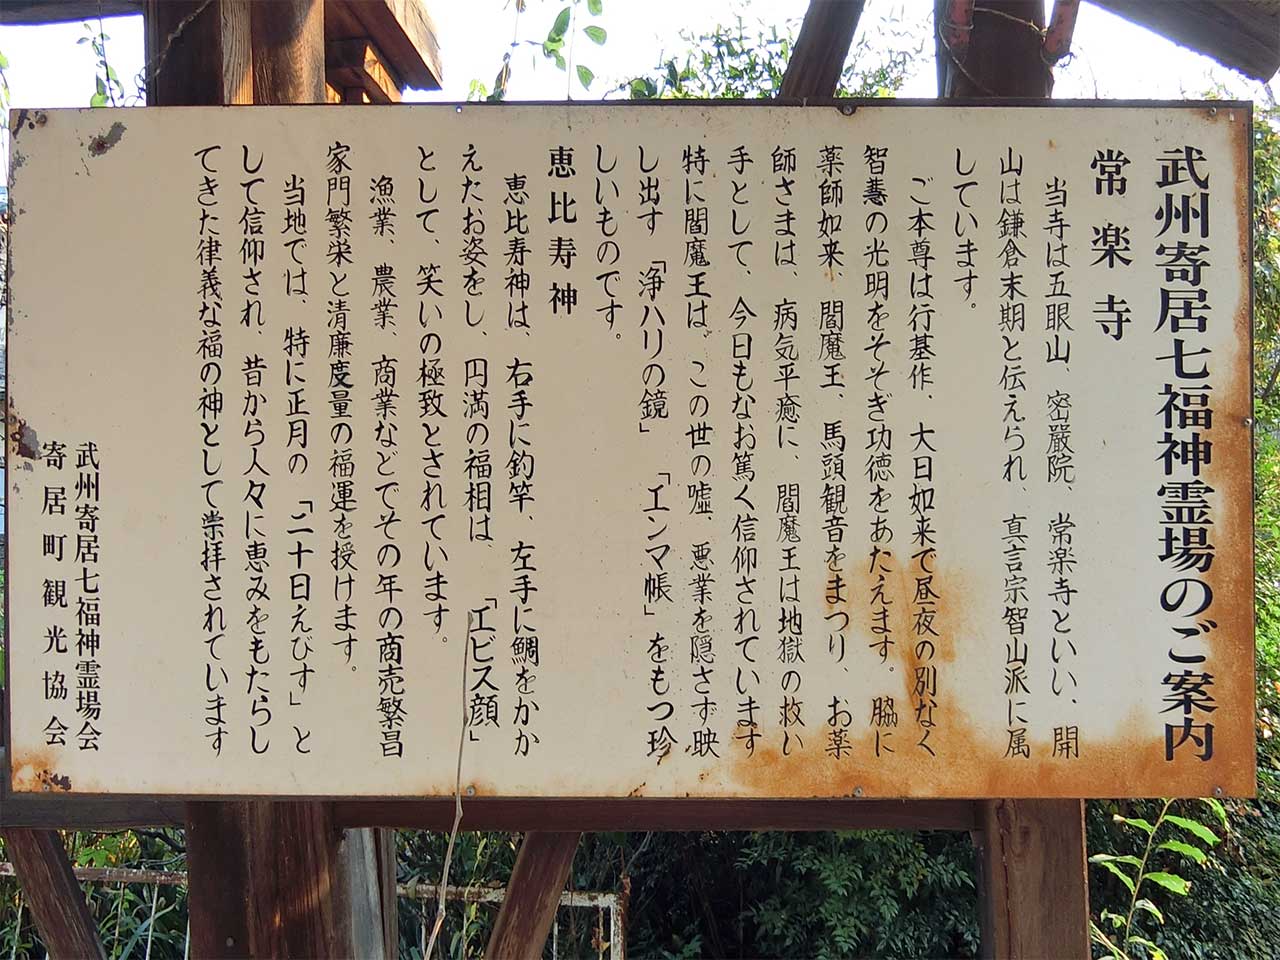 武州寄居七福神霊場のご案内
常楽寺
当寺は五眼山、密嚴院、常楽寺といい、開
山は鎌倉末期と伝えられ、真言宗智山派に属
しています。
ご本尊は行基作、大日如来で昼夜の別なく
智慧の光明をそそぎ功徳をあたえます。脇に
薬師如来、閻魔王、馬頭観音をまつり、お薬
師さまは、病気平癒に、閻魔王は地獄の救い
手として、今日もなお篤く信仰されています
特に閻魔王は、この世の嘘、悪業を隠さず映
し出す「浄ハリの鏡」「エンマ帳」をもつ珍
しいものです。
恵比寿神
恵比寿神は、右手に釣竿、左手に鯛をかか
えたお姿をし、円満の福相は、「エビス顔」
として、笑いの極致とされています。
漁業、農業、商業などでその年の商売繁昌
家門繁栄と清廉度量の福運を授けます。
当地では、特に正月の「二十日えびす」と
して信仰され、昔から人々に恵みをもたらし
てきた律義な福の神として崇拝されています
武州寄居七福神霊場会
寄居町観光協会